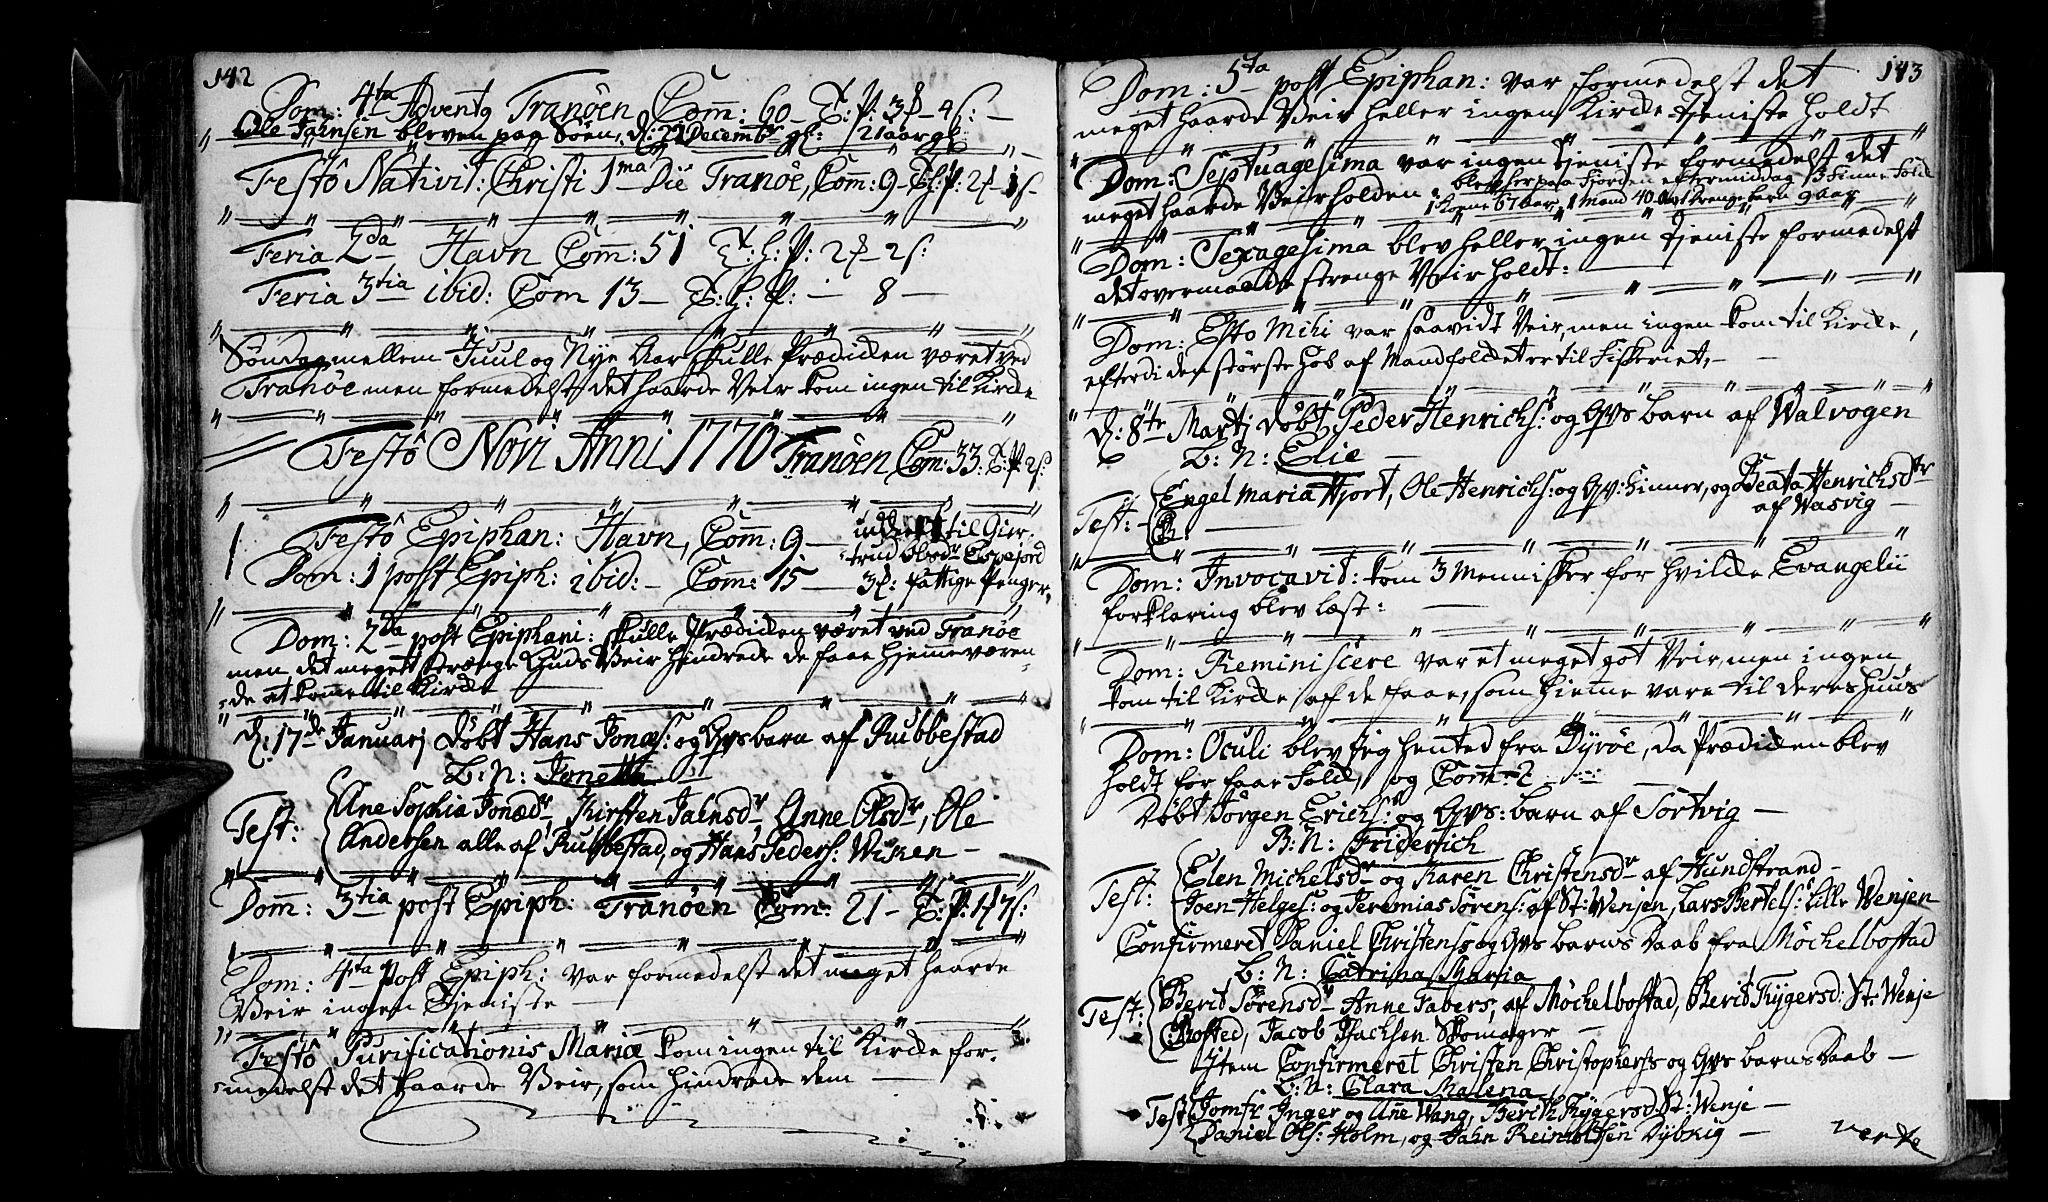 142
Dom: 4ta Adventg Tranöen Com̄: 60 - T: P: 3 - 4 s: -
Ole Jahnsen bleven paa Söen, d: 22 Decembr gl: 21 aar gl:
Festô Nativit: Christi 1ma Die Tranöe, Com̄: 9 - T: P: 2 - 1 s -
Feria 2da Havn Com̄: 51 T: h: P: 2 - 2 s:
Feria 3tia ibid: Com 13 - T: h: P: - 8 -
Söndag mellem Juul og Nye Aar skulle Prædicken været ved
Tranöe men formedelst det haarde Veir kom ingen til Kirke
Festô Novi Anni 1770 Tranöen Com̄: 33: T: P: 2 s:
Festô Epiphan: Havn, Com̄: 9 - til Gier-
-trud Olsdr Espefiord
Dom: 1 post Epiph: ibid: - Com̄: 15 - 3 : fattige Penger
Dom: 2da post Epiphani: skulle Prædicken været ved Tranöe
men det meget strænge Guds Veir hindrede de faae hiemmeværen-
-de at komme til Kirke
d: 17de Januarj döbt Hans Jonæs: og Qvs barn af Rubbestad
B: N: Jonetta
Test: Ane Sophia Jonædr, Kirsten Jahnsdr, Anne Olsdr, Ole
Andersen alle af Rubbestad, og Hans Peders: Wiken -
Dom̄: 3tia post Epiph: Tranöen Com̄: 21 - T: P: 1 7 s:
Dom: 4ta Post Epiph: var formedelst det meget haarde
Veir ingen Tieniste
Festô Purificationis Mariæ kom ingen til Kirke for-
-medelst det haarde Veir, som hindrede dem
143
Dom: 5ta post Epiphan: var formedelst det
meget haarde Veir heller ingen Kirke Tieniste holdt
Dom: Septuagesima var ingen Tieniste formedelst det
meget haarde Veir holden, blev her paa Fiorden eftermiddag 3 Finne Folk
1 Kone 67 aar, 1 Mand 40 drenge barn 9 aar
Dom: Sexagesima blev heller ingen Tieniste formedelst
det overmaade strenge Veir holdt:
Dom: Esto Mihi var saavidt Veir, men ingen kom til Kirke,
efterdi den störste hob af Mandfolket er til Fiskeriet,-
d: 8tr Martj döbt Peder Henrichs: og Qvs barn af Walvogen
B: N: Elie
Test: Engel Maria Hjort, Ole Henrichs: og Qv: hinner, og Beata Henricksdtr
af Wasvig
Dom: Invocavit: kom 3 Mennisker for hvilcke Evangelii
forklaring blev læst:
Dom: Reminiscere var et meget got Veir, men ingen
kom til Kirke af de faae, som hieme vare til deres huus
Dom: Oculi blev jeg hented fra Dyröe, da Prædicken blev
holdt for faae Folck, og Com̄: 2
Döbt Jörgen Erichs: og Qvs: barn af Sörtvig -
B: N: Friderich
Test: Elen Michelsdr og Karen Christensdr af Hundstrand -
Joen Helges: og Jeremias Sörens: af St: Wenjen, Lars Bertels: Lille Wenjen
Confirmeret Daniel Christens: og Qvs barns daab fra Möckelbostad
B: N: Catrina Maria
Test: Berit Sörensdr Anne Fabers, af Möckelbostad, Berit Trygersd: St: Wenje
Jacob Isachsen Skomager -
Item Confirmeret Christen Christophers: og Qvs barns daab -
B: N: Clara Malena
Test: Jomfr: Inger og Ane Wang, Berith Trygersd: St: Wenje -
Daniel Ols: Holm, og Jahn Reinholtsen Dybvig -